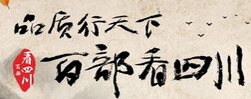 品质行天下
看四川
百部看四川